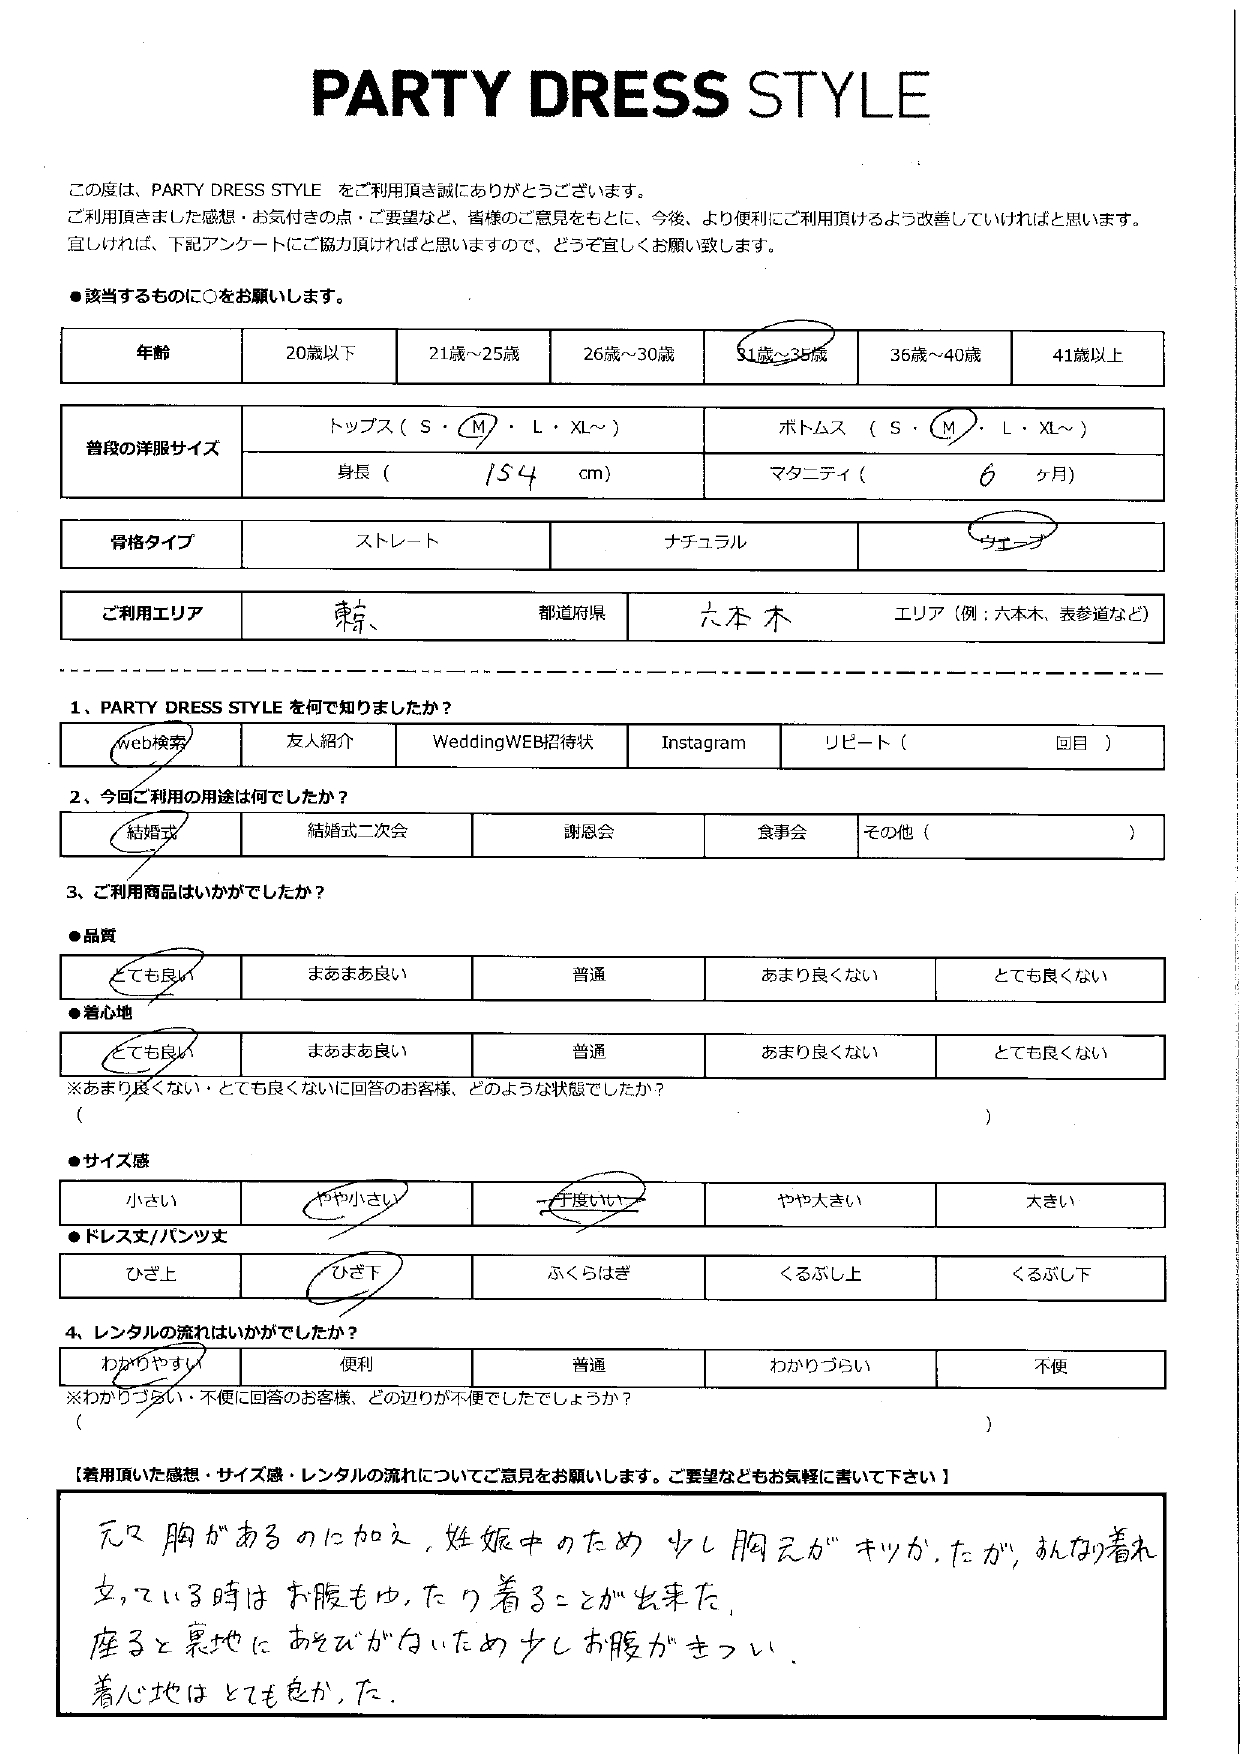 PARTY DRESS STYLE
この度は、PARTY DRESS STYLE をご利用頂き誠にありがとうございます。
ご利用頂きました感想・お気付きの点・ご要望など、皆様のご意見をもとに、今後、より便利にご利用頂けるよう改善していければと思います。
宜しければ、下記アンケートにご協力頂ければと思いますので、どうぞ宜しくお願い致します。
●該当するものに○をお願いします。
年齢 20歳以下 21歳～25歳 26歳～30歳 31歳～35歳 36歳～40歳 41歳以上
普段の洋服サイズ
トップス ( S ・ M ・ L ・ XL～ ) ボトムス ( S ・ M ・ L ・ XL～ )
身長 ( 154 cm) マタニティ ( 6 ヶ月)
骨格タイプ ストレート ナチュラル ウエーブ
ご利用エリア 東京 都道府県 六本木 エリア（例：六本木、表参道など）
1、PARTY DRESS STYLE を何で知りましたか？
web検索 友人紹介 WeddingWEB招待状 Instagram リピート ( 回目 )
2、今回ご利用の用途は何でしたか？
結婚式 結婚式二次会 謝恩会 食事会 その他 ( )
3、ご利用商品はいかがでしたか？
●品質
とても良い まあまあ良い 普通 あまり良くない とても良くない
●着心地
とても良い まあまあ良い 普通 あまり良くない とても良くない
※あまり良くない・とても良くないに回答のお客様、どのような状態でしたか？
( )
●サイズ感
小さい やや小さい 丁度いい やや大きい 大きい
●ドレス丈/パンツ丈
ひざ上 ひざ下 ふくらはぎ くるぶし上 くるぶし下
4、レンタルの流れはいかがでしたか？
わかりやすい 便利 普通 わかりづらい 不便
※わかりづらい・不便に回答のお客様、どの辺りが不便でしたでしょうか？
( )
【着用頂いた感想・サイズ感・レンタルの流れについてご意見をお願いします。ご要望などもお気軽に書いて下さい】
元々胸があるのに加え、妊娠中のため少し胸元がキツかったが、すんなり着れ
立っている時はお腹もゆったり着ることが出来た。
座ると裏地にあそびがないため少しお腹がきつい。
着心地はとても良かった。